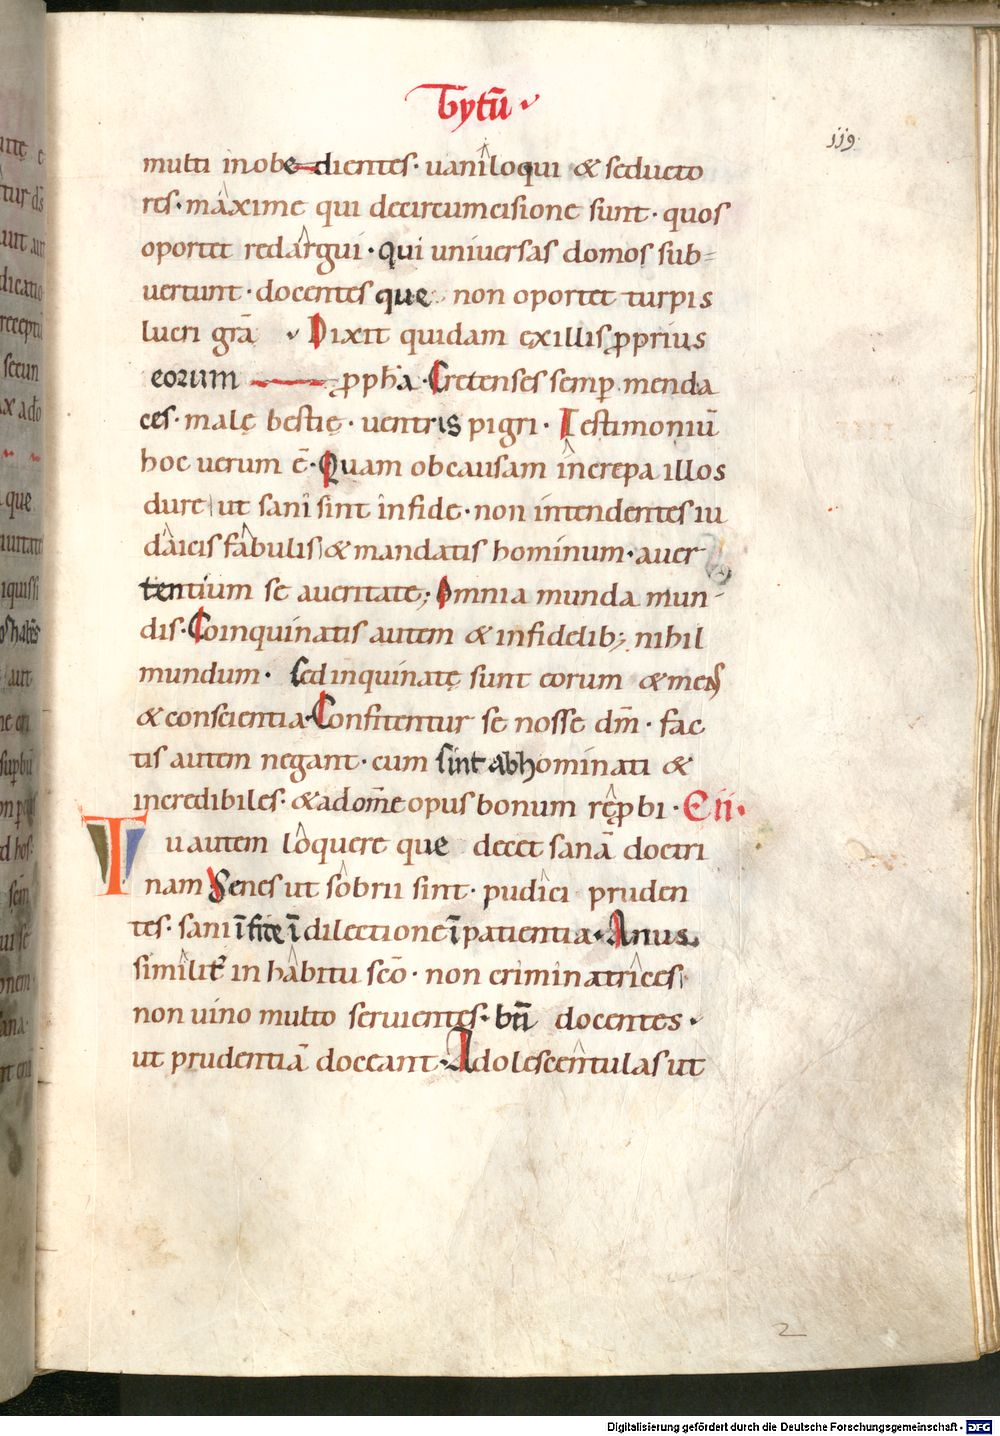 Tytū
119
multi inobedientes· uaniloqui & seducto
res· maxime qui decircumcisione sunt· quos
oportet redargui· qui uniuersas domos sub=
uertunt· docentes que non oportet turpis
lucri grā Dixit quidam exillis pprius
eorum ppha· Cretenses semp menda
ces· malę bestię· uentris pigri· Testimoniū
hoc uerum ē· Quam obcausam increpa illos
dure ut sani sint infide· non intendentes iu
daicis fabulis & mandatis hominum· auer
tentium se aueritate; Omnia munda mun-
dis· Coinquinatis autem & infidelib; nihil
mundum· sed inquinatę sunt eorum & mens
& conscientia· Confitentur se nosse dm̄· fac
tis autem negant· cum sint abhominati &
incredibiles· & adom̄e opus bonum repbi· C ii·
Tu autem loquere que decet sanā doctri
nam Senes ut sobrii sint· pudici pruden
tes· sani ī fide ī dilectione ī patientia· Anus
similit̄ in habitu scō· non criminatrices
non uino multo seruientes· bn̄ docentes·
ut prudentiā doceant· Adolescentulas ut
2
Digitalisierung gefördert durch die Deutsche Forschungsgemeinschaft - DFG